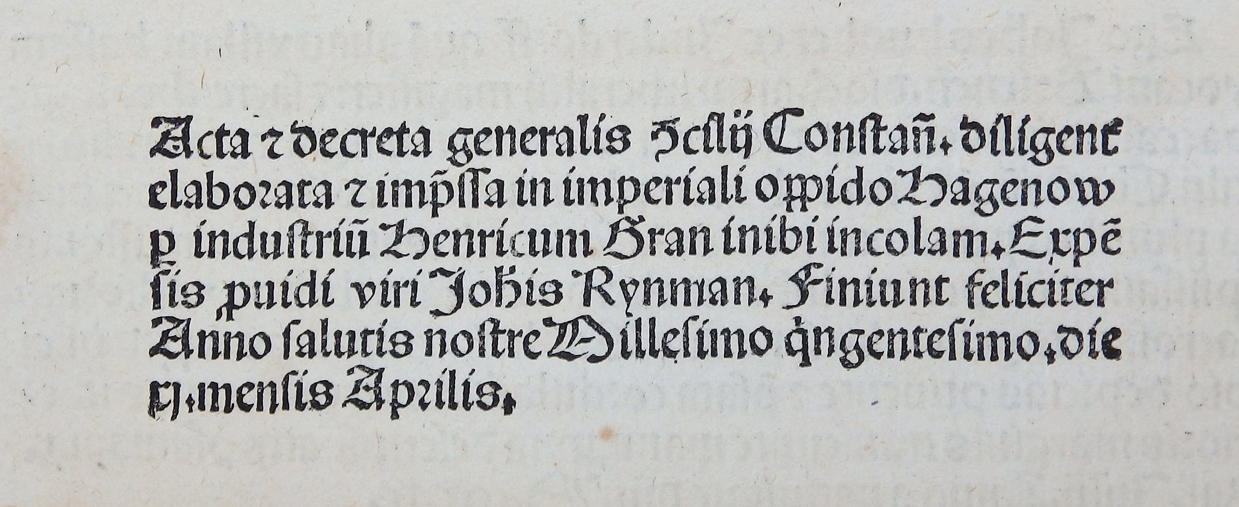 Acta ⁊ decreta generalis ꝯcilij Constan̄. diligent̄
elaborata ⁊ imp̄ssa in imperiali oppido Hagenow
ꝑ industriū Henricum Gran inibi incolam. Expē
sis ꝓuidi viri Joh̄is Rynman. Finiunt feliciter
Anno salutis nostre Millesimo qͥngentesimo. die
xj. mensis Aprilis.